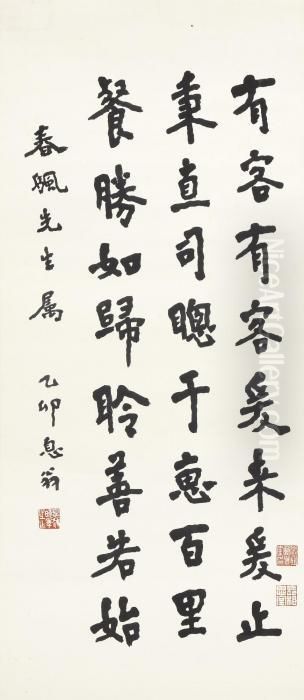 有客有客爰来爰止
秉直司聰于惠百里
餐勝如歸聆善若始
春颿先生属
乙卯息翁
NiceArtGallery.com